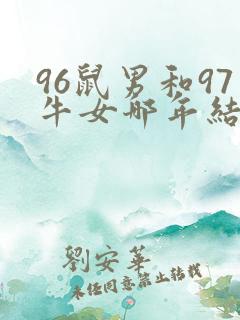 96鼠男和97
牛女那年結
劉安華
未經同意禁止轉載